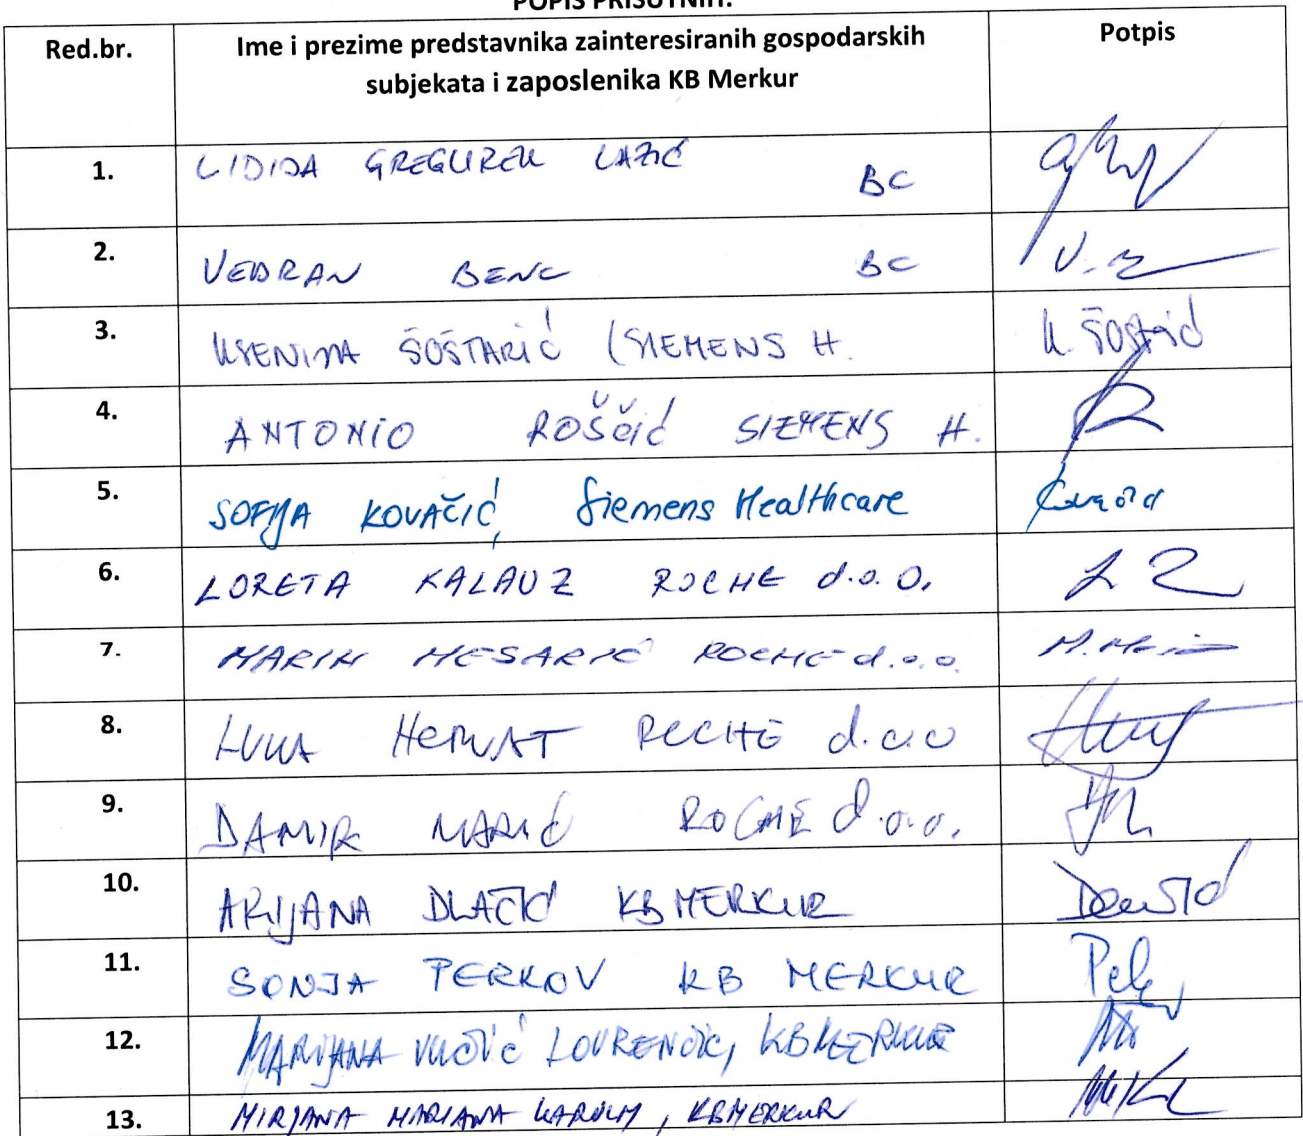 POPIS PRISUTNIH:
Red.br. Ime i prezime predstavnika zainteresiranih gospodarskih subjekata i zaposlenika KB Merkur Potpis
1. LIDIJA GREGUREK LAZIĆ BC
2. VEDRAN BENC BC
3. KSENIJA ŠOŠTARIĆ (SIEMENS H. K. Šoštarić
4. ANTONIO ROŠČIĆ SIEMENS H.
5. SOFIJA KOVAČIĆ, Siemens Healthcare
6. LORETA KALAUZ ROCHE d.o.o.
7. MARIN MESARIĆ ROCHE d.o.o.
8. LUKA HORVAT ROCHE d.o.o
9. DAMIR MARIĆ ROCHE d.o.o.
10. ARIJANA DLAČIĆ KB MERKUR
11. SONJA PERKOV KB MERKUR
12. MARIJANA VUČIĆ LOVRENČIĆ, KB MERKUR
13. MIRJANA MARIANA, KB MERKUR